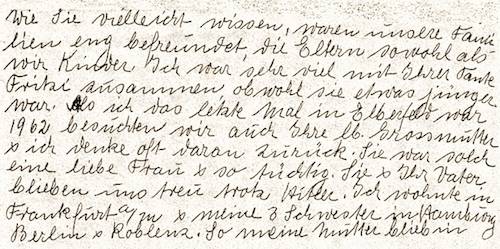 Wie Sie vielleicht wissen, waren unsere Fami
lien eng befreundet, die Eltern sowohl als
wir Kinder. Ich war sehr viel mit Ihrer Tante
Fritzi zusammen obwohl sie etwas jünger
war. Als ich das letzte Mal in Elberfeld war
1962 besuchten wir auch Ihre lb. Grossmutter
& ich denke oft daran zurück. Sie war solch
eine liebe Frau & so tüchtig. Sie & Ihr Vater
blieben uns treu trotz Hitler. Ich wohnte in
Frankfurt a/M & meine 3 Schwester in Hamburg
Berlin & Koblenz. So meine Mutter blieb in